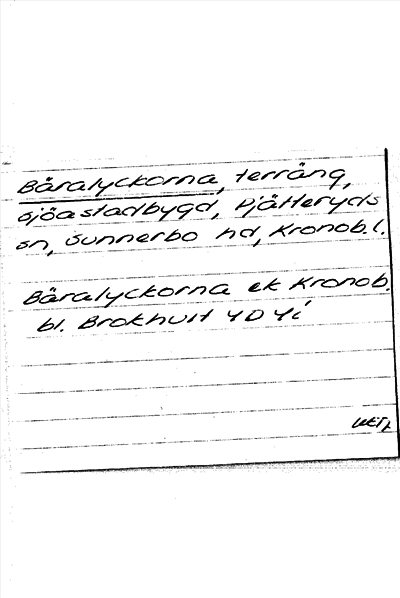 Bäralyckorna, terräng,
Sjöastadbygd, Pjätteryds
sn, Sunnerbo hd, Kronob.l.
Bäralyckorna ek Kronob.
bl. Brokhult 4D4i